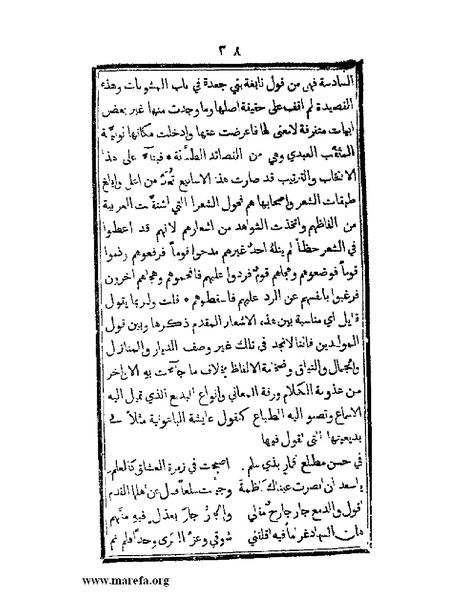 ٣٨
السادسة فهي من قول نابغة بني جعدة في باب المشوبات وهذه
القصيدة لم اقف على حقيقة اصلها وما وجدت منها غير بعض
ابيات متفرقة لا معنى لها فاعرضت عنها وادخلت مكانها نونية
المثقب العبدي وهي من القصائد الطنّانة * فبناءً على هذا
الانتخاب والترتيب قد صارت هذه الاسابيع تُعَدّ من اعلى وابلغ
طبقات الشعر واصحابها هم فحول الشعرا التي اشتقّت العربية
من الفاظهم واتخذت الشواهد من اشعارهم لانهم قد اعطوا
في الشعر حظاً لم ينله احدٌ غيرهم مدحوا قوماً فرفعوهم وذموا
قوماً فوضعوهم وهجاهم قومٌ فردوا عليهم فافحموهم وهجاهم آخرون
فرغبوا بانفسهم عن الرد عليهم فاسقطوهم * قلت ولربما يقول
قايل اي مناسبة بين هذه الاشعار المقدم ذكرها وبين قول
المولدين فاننا لا نجد في تلك غير وصف الديار والمنازل
والجمال والنياق وضخمة الالفاظ بخلاف ما جآءت به الاواخر
من عذوبة الكلام ورقة المعاني وانواع البديع الذي تميل اليه
الاسماع وتصبو اليه الطباع كقول عايشة الباعونية مثلاً في
بديعيتها التي تقول فيها
في حسن مطلع اقمار بذي سلم اصبحت في زمرة العشاق كالعلم
يا سعد ان ابصرت عيناك كاظمة وجيت سلعاً فسل عن اهلها القدم
اقول والدمع جارٍ جارحٌ مقلي والجارُ جارَ بعذلٍ فيه متّهم
شوقي وعزّ الكرى وجداً فلم انم
www.marefa.org